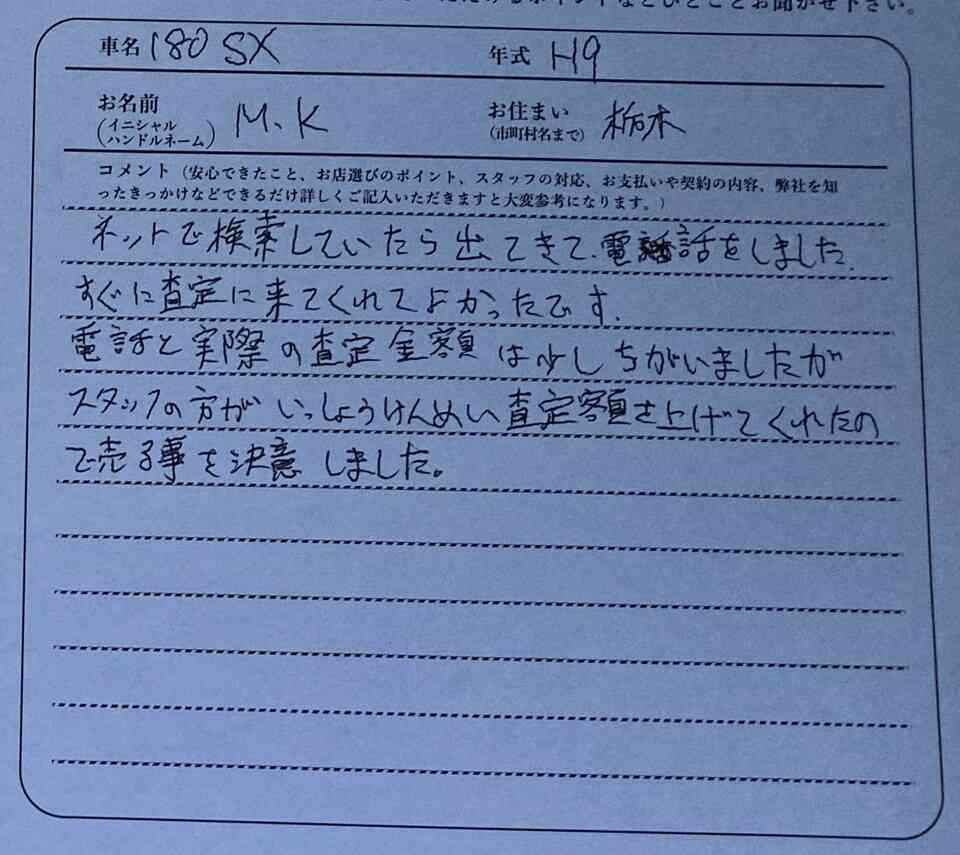 ただけるポイントなどひとことお聞かせ下さい。
車名 180 SX 年式 H9
お名前 (イニシャル ハンドルネーム) M.K お住まい (市町村名まで) 栃木
コメント(安心できたこと、お店選びのポイント、スタッフの対応、お支払いや契約の内容、弊社を知
ったきっかけなどできるだけ詳しくご記入いただきますと大変参考になります。)
ネットで検索していたら出てきて、電話をしました。
すぐに査定に来てくれてよかったです。
電話と実際の査定金額は少しちがいましたが
スタッフの方がいっしょうけんめい査定額を上げてくれたの
で売る事を決意しました。